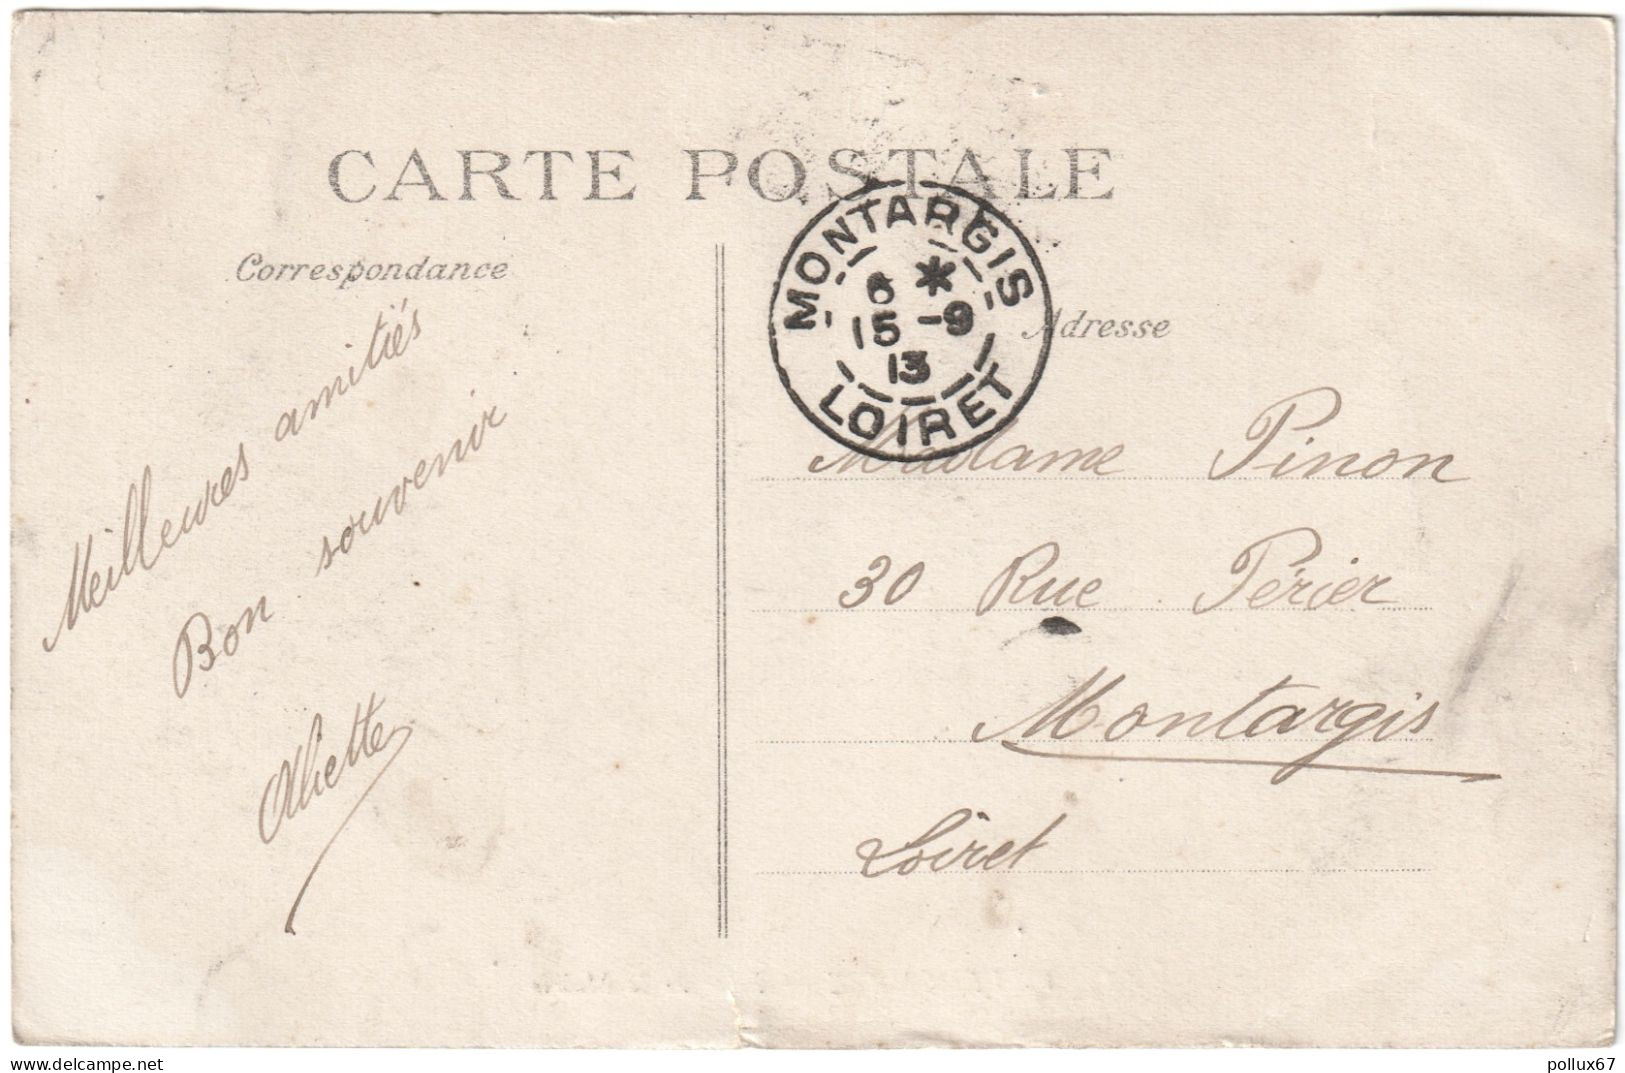 CARTE POSTALE
Correspondance
Meilleures amitiés
Bon souvenir
MONTARGIS
6 *
15 -9
13
LOIRET
Adresse
Madame Pinon
30 Rue Périer
Montargis
Loiret
delcampe.net
pollux67